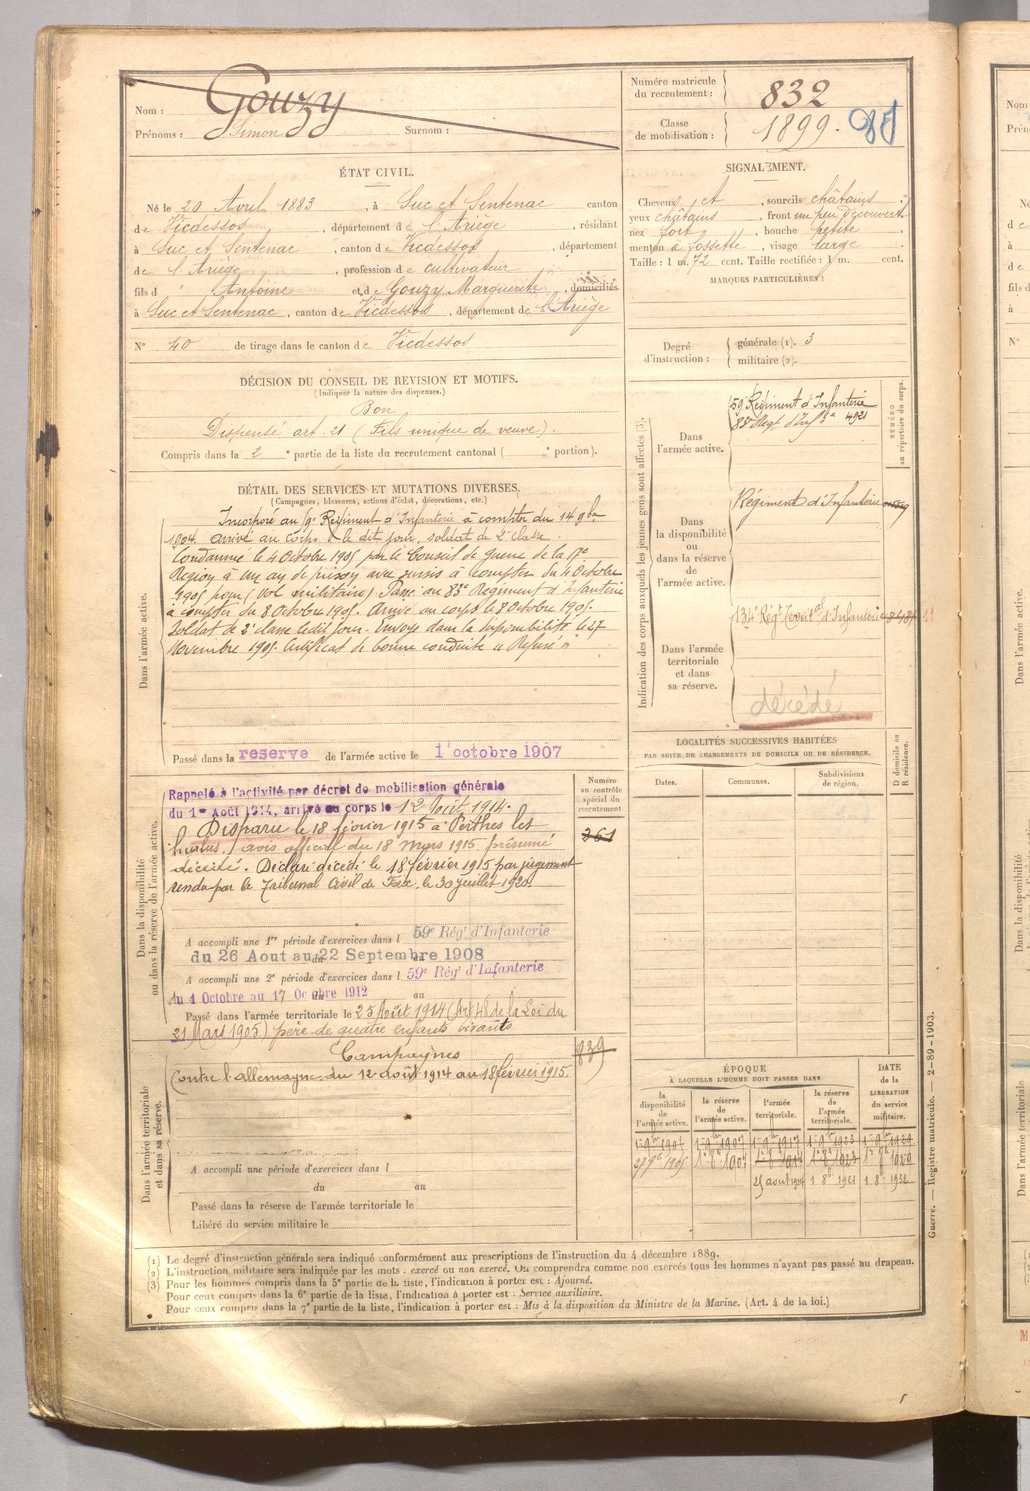 Nom : Gouzy
Prénoms : Simon Surnom :
Numéro matricule du recrutement : 832
Classe de mobilisation : 1899.
ÉTAT CIVIL.
Né le 20 Avril 1883, à Suc et Sentenac canton
de Vicdessos, département de l'Ariège, résidant
à Suc et Sentenac, canton de Vicdessos, département
de l'Ariège, profession de cultivateur
fils d' Antoine et de Gouzy Marguerite, domiciliés
à Suc et Sentenac, canton de Vicdessos, département de l'Ariège
N° 40 de tirage dans le canton de Vicdessos
SIGNALEMENT.
Cheveux et, sourcils châtains
yeux châtains, front un peu découvert
nez fort, bouche petite
menton à fossette, visage large
Taille : 1 m. 72 cent. Taille rectifiée : 1 m. cent.
MARQUES PARTICULIÈRES :
Degré d'instruction :
générale (1). 3
militaire (2).
DÉCISION DU CONSEIL DE REVISION ET MOTIFS.
(Indiquer la nature des dispenses.)
Bon
Dispensé art. 21 (Fils unique de veuve).
Compris dans la 2e partie de la liste du recrutement cantonal ( e portion).
DÉTAIL DES SERVICES ET MUTATIONS DIVERSES.
(Campagnes, blessures, actions d'éclat, décorations, etc.)
Dans l'armée active.
Incorporé au 59e Régiment d'Infanterie à compter du 14 9bre
1904. arrivé au corps le dit jour, soldat de 2e classe.
Condamné le 4 Octobre 1905 par le Conseil de guerre de la 17e
Région à un an de prison avec sursis à compter du 4 Octobre
1905 pour (vol militaire). Passé au 83e Régiment d'Infanterie
à compter du 8 Octobre 1905. Arrivé au corps le 8 Octobre 1905.
Soldat de 2e classe ledit jour. Envoyé dans la disponibilité le 27
Novembre 1905. Certificat de bonne conduite "Refusé"
Passé dans la reserve de l'armée active le 1er octobre 1907
Indication des corps auxquels les jeunes gens sont affectés (3).
NUMÉRO au répertoire du corps.
Dans l'armée active.
59e Régiment d'Infanterie
83e Regt d'Infie 4921
Dans la disponibilité ou dans la réserve de l'armée active.
Régiment d'Infanterie
Dans l'armée territoriale et dans sa réserve.
134e Régt Territal d'Infanterie
décédé
LOCALITÉS SUCCESSIVES HABITÉES
PAR SUITE DE CHANGEMENTS DE DOMICILE OU DE RÉSIDENCE.
D domicile ou R résidence.
Dates. Communes. Subdivisions de région.
Dans la disponibilité ou dans la réserve de l'armée active.
Numéro au contrôle spécial du recrutement
Rappelé à l'activité par décret de mobilisation générale
du 1er Août 1914, arrivé au corps le 12 Août 1914.
Disparu le 18 février 1915 à Perthes les
hurlus. (avis officiel du 18 mars 1915 présumé
décédé. Déclaré décédé le 18 février 1915 par jugement
rendu par le Tribunal Civil de Foix le 30 juillet 1920.
261
A accompli une 1re période d'exercices dans l 59e Régt d'Infanterie
du 26 Aout au 22 Septembre 1908
A accompli une 2e période d'exercices dans l 59e Régt d'Infanterie
du 1 Octobre au 17 Octobre 1912
Passé dans l'armée territoriale le 25 Août 1914 (Art 48 de la Loi du
21 Mars 1905) père de quatre enfants vivants
Dans l'armée territoriale et dans sa réserve.
839
Campagnes
Contre l'allemagne du 12 août 1914 au 18 février 1915.
A accompli une période d'exercices dans l
du au
Passé dans la réserve de l'armée territoriale le
Libéré du service militaire le
ÉPOQUE
À LAQUELLE L'HOMME DOIT PASSER DANS
la disponibilité de l'armée active. la réserve de l'armée active. l'armée territoriale. la réserve de l'armée territoriale.
DATE de la LIBÉRATION du service militaire.
(1) Le degré d'instruction générale sera indiqué conformément aux prescriptions de l'instruction du 4 décembre 1889.
(2) L'instruction militaire sera indiquée par les mots : exercé ou non exercé. On comprendra comme non exercés tous les hommes n'ayant pas passé au drapeau.
(3) Pour les hommes compris dans la 5e partie de la liste, l'indication à porter est : Ajourné.
Pour ceux compris dans la 6e partie de la liste, l'indication à porter est : Service auxiliaire.
Pour ceux compris dans la 7e partie de la liste, l'indication à porter est : Mis à la disposition du Ministre de la Marine. (Art. 4 de la loi.)
Guerre. — Registre matricule. 2-89-1903.